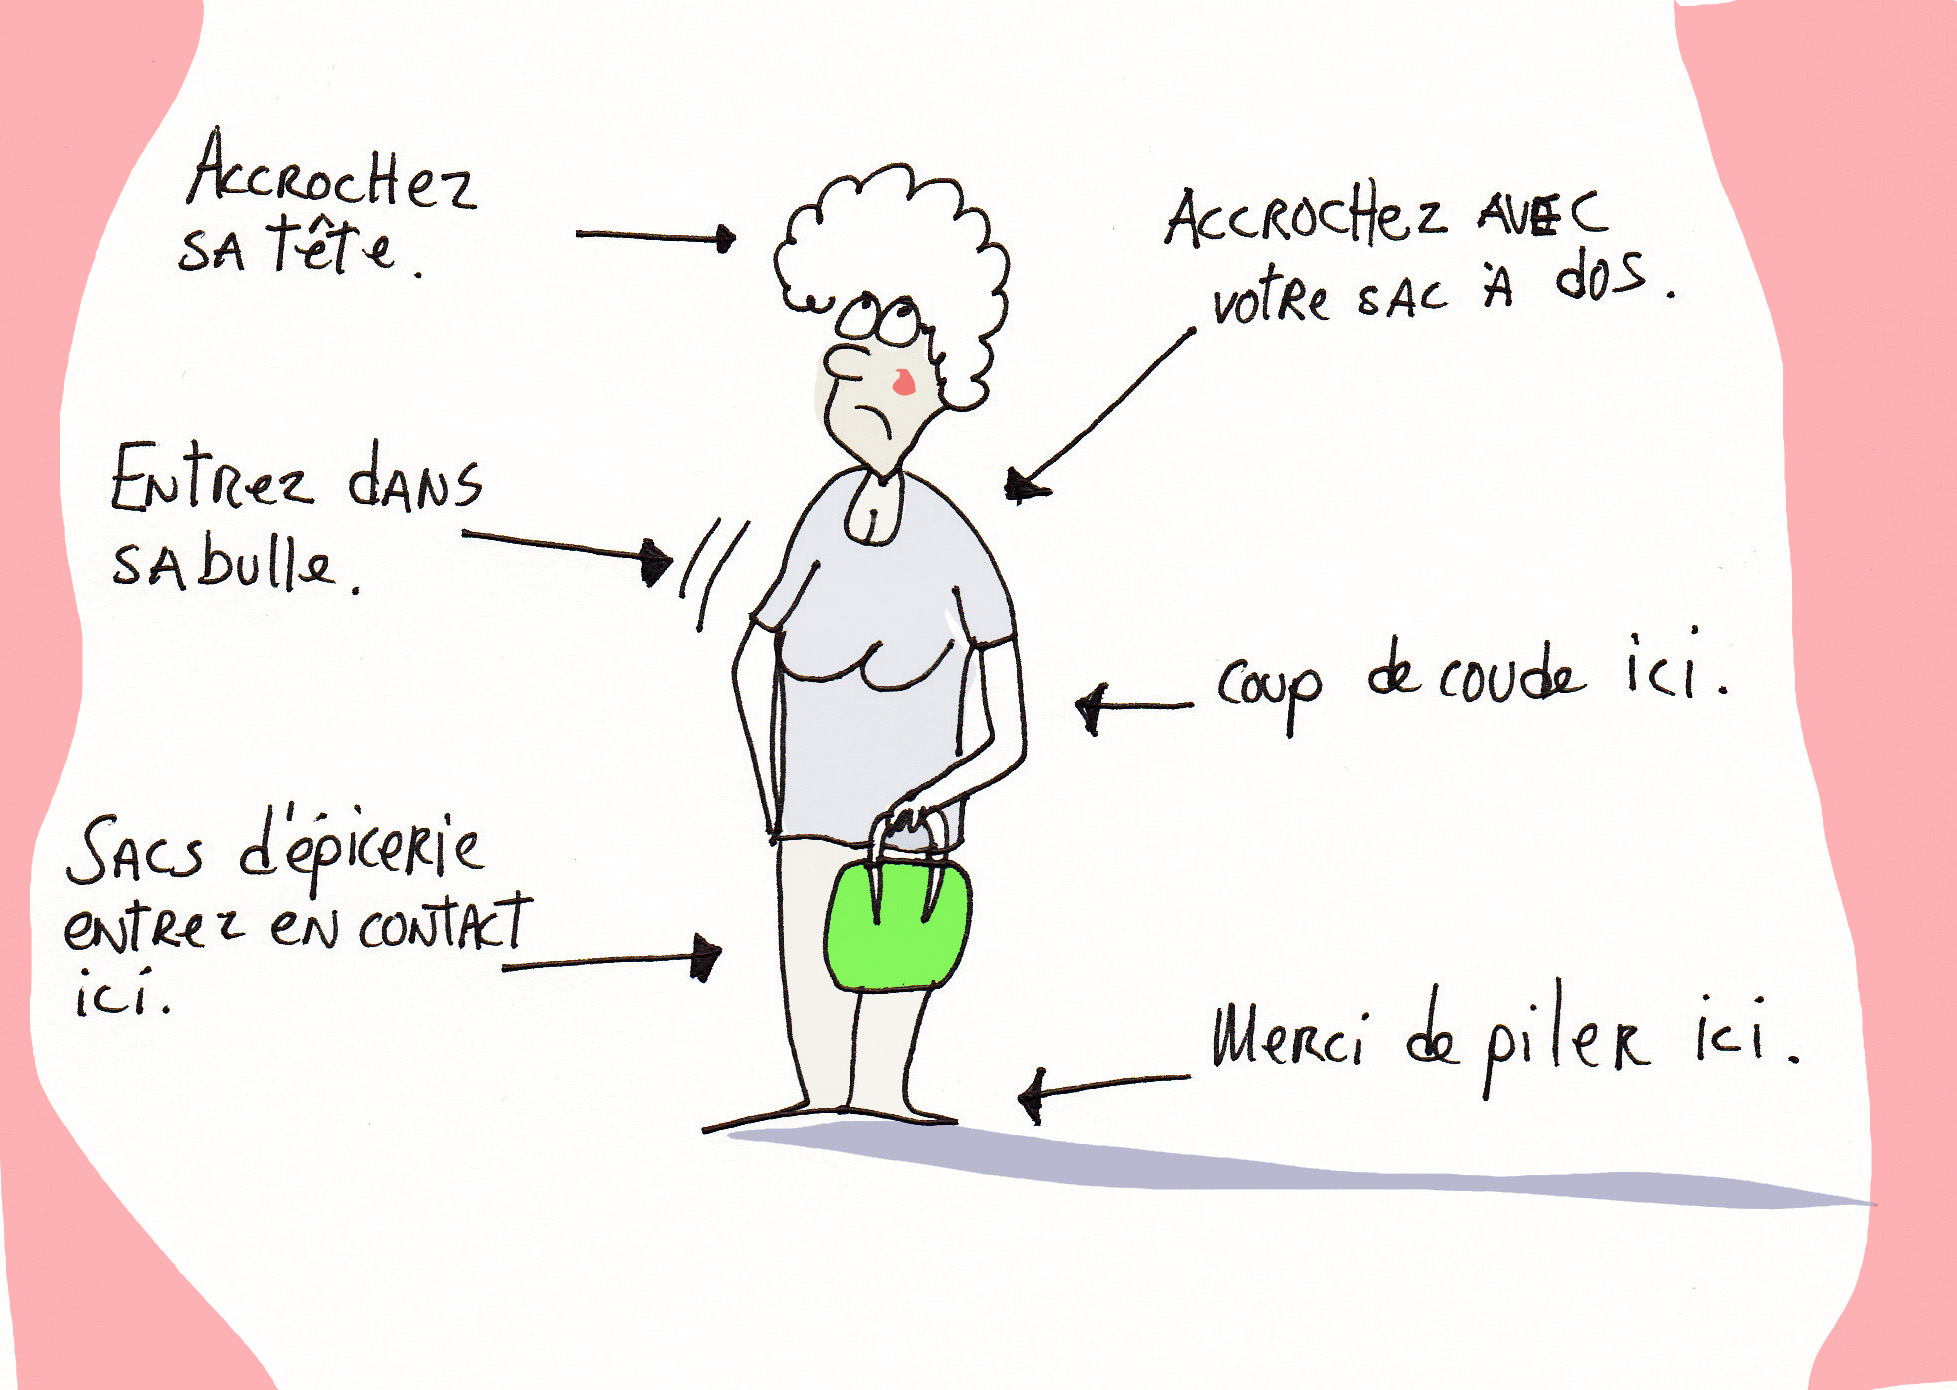 Accrochez
sa tête.
Accrochez avec
votre sac à dos.
Entrez dans
sa bulle.
coup de coude ici.
Sacs d'épicerie
entrez en contact
ici.
Merci de piler ici.